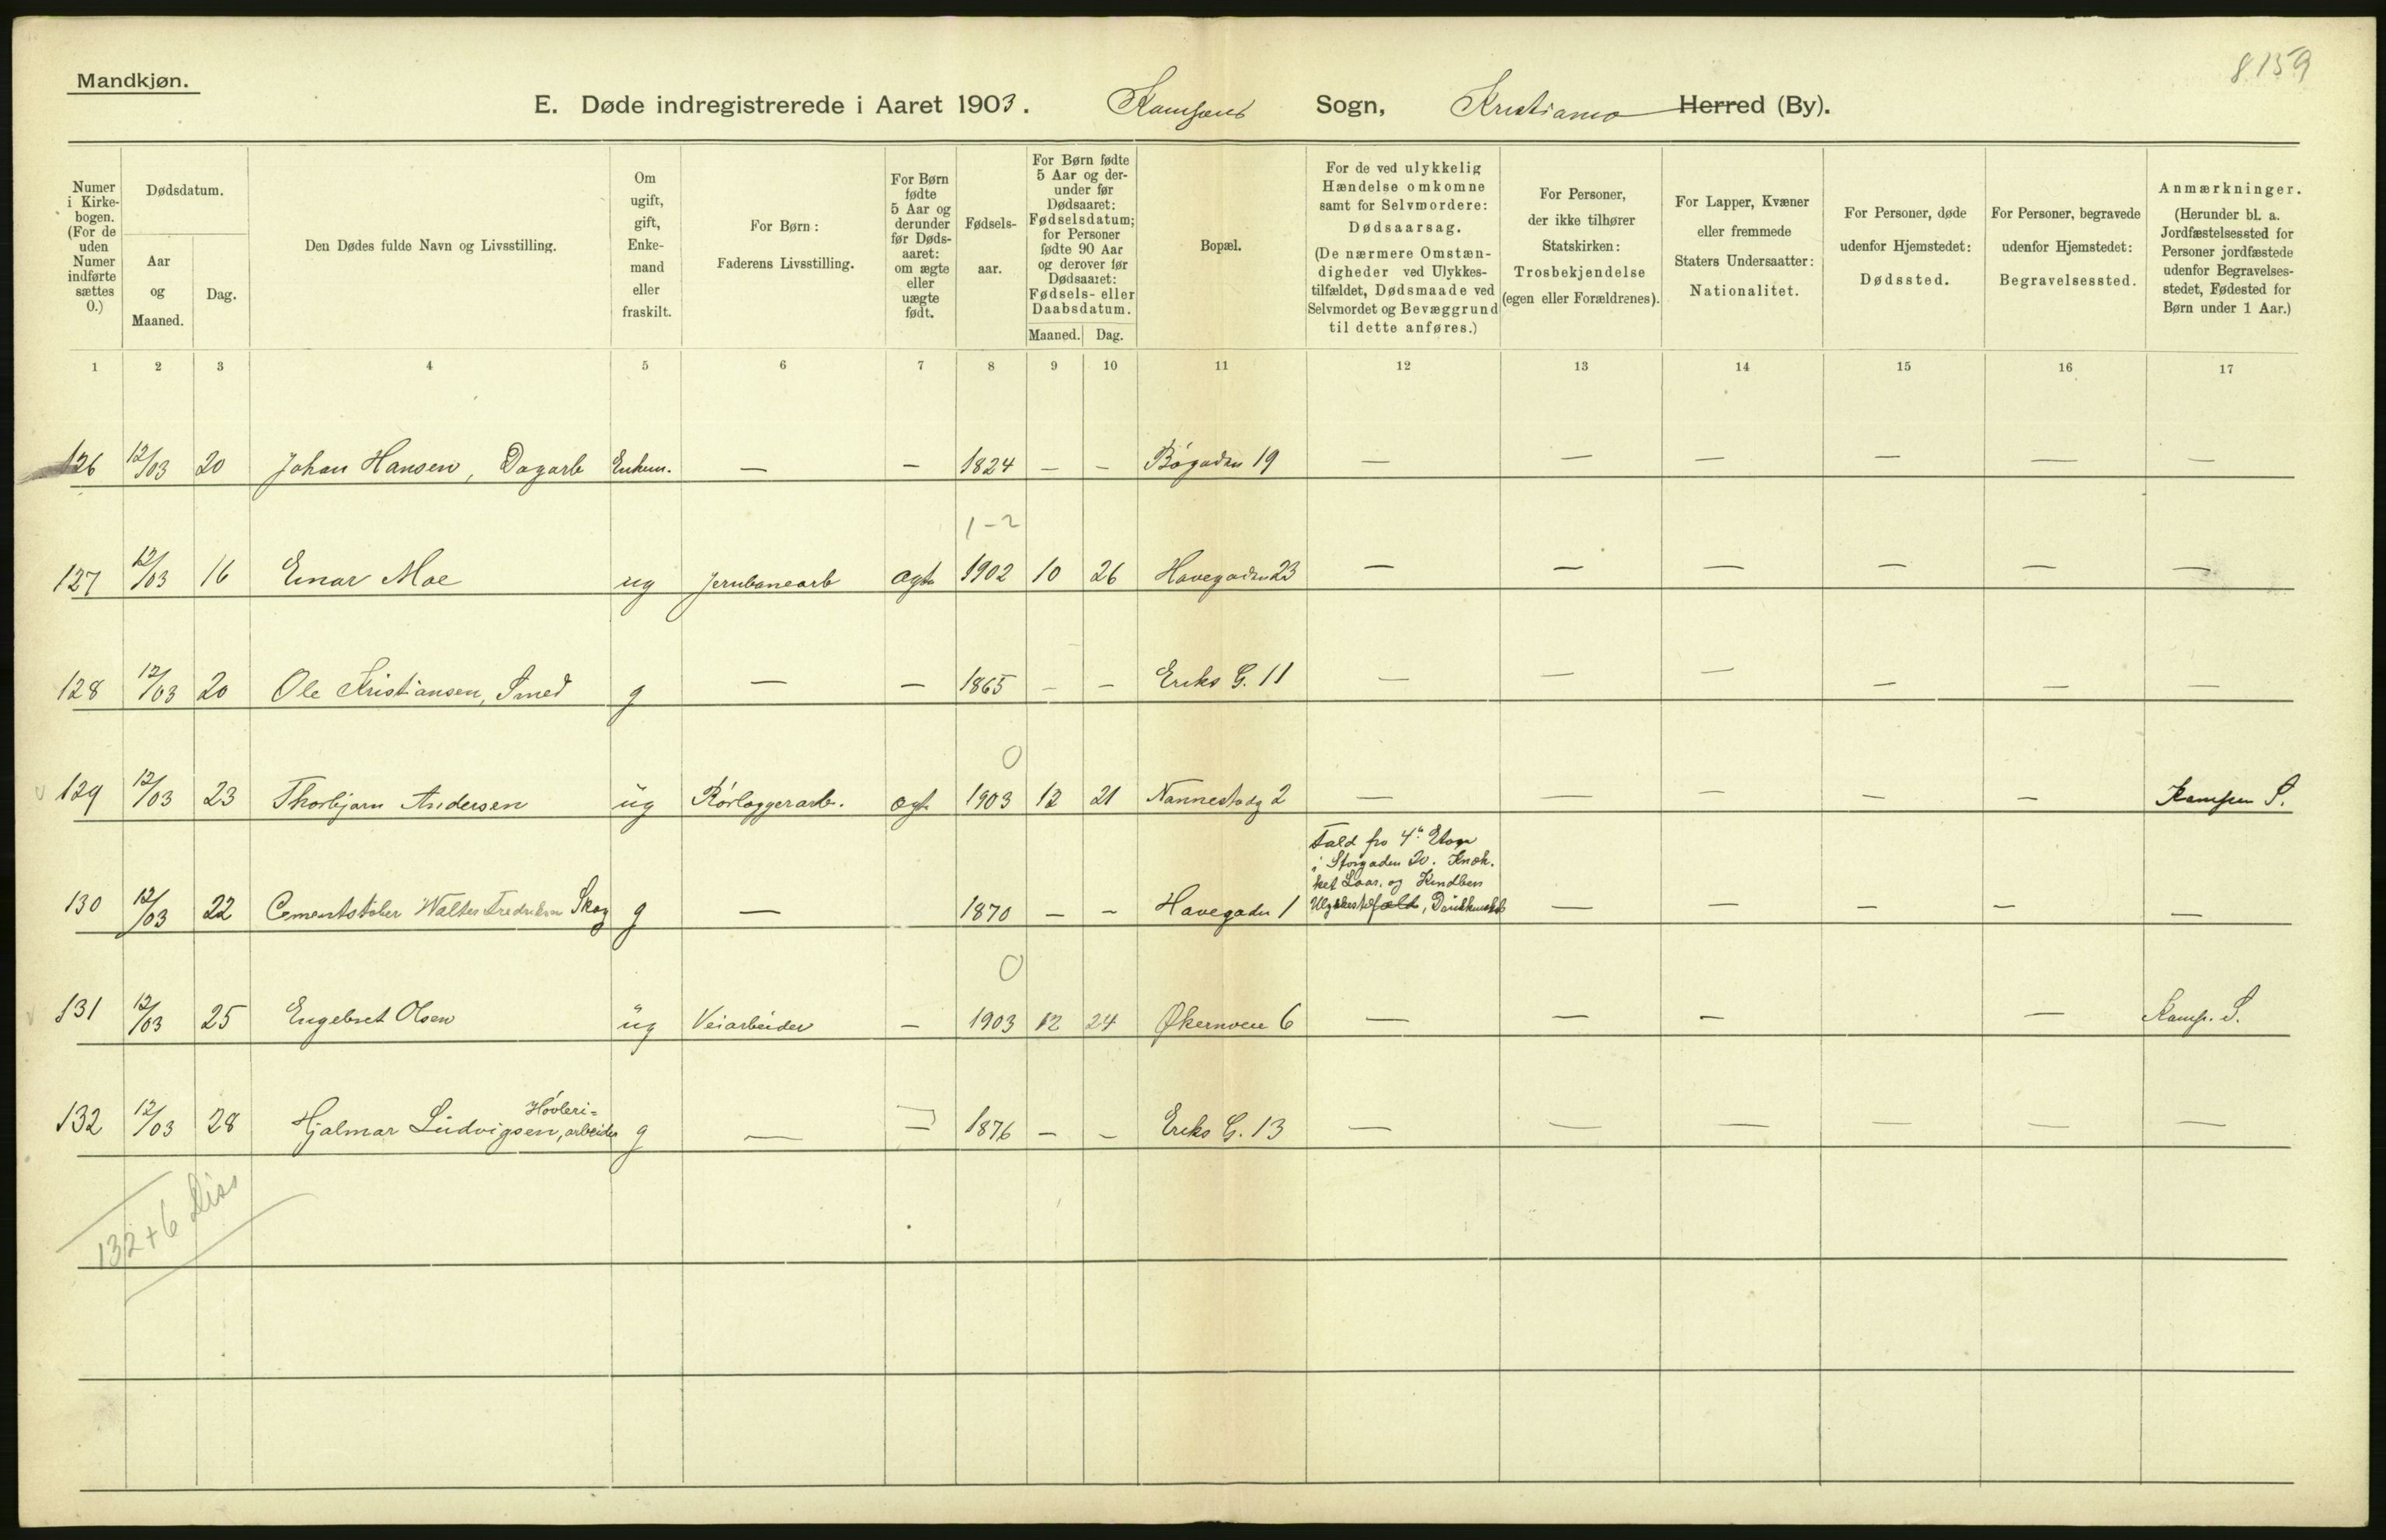 8159
Mandkjøn.
E. Døde indregistrerede i Aaret 1903. Kampens Sogn, Kristiania Herred (By).
Numer i Kirkebogen. (For de uden Numer indførte sættes 0.)
Dødsdatum.
Aar og Maaned.
Dag.
Den Dødes fulde Navn og Livsstilling.
Om ugift, gift, Enkemand eller fraskilt.
For Børn: Faderens Livsstilling.
For Børn fødte 5 Aar og derunder før Dødsaaret: om ægte eller uægte født.
Fødselsaar.
For Børn fødte 5 Aar og derunder før Dødsaaret: Fødselsdatum; for Personer fødte 90 Aar og derover før Dødsaaret: Fødsels- eller Daabsdatum.
Maaned. Dag.
Bopæl.
For de ved ulykkelig Hændelse omkomne samt for Selvmordere: Dødsaarsag. (De nærmere Omstændigheder ved Ulykkestilfældet, Dødsmaade ved Selvmordet og Bevæggrund til dette anføres.)
For Personer, der ikke tilhører Statskirken: Trosbekjendelse (egen eller Forældrenes).
For Lapper, Kvæner eller fremmede Staters Undersaatter: Nationalitet.
For Personer, døde udenfor Hjemstedet: Dødssted.
For Personer, begravede udenfor Hjemstedet: Begravelsessted.
Anmærkninger. (Herunder bl. a. Jordfæstelsessted for Personer jordfæstede udenfor Begravelsesstedet, Fødested for Børn under 1 Aar.)
1 2 3 4 5 6 7 8 9 10 11 12 13 14 15 16 17
126 12/03 20 Johan Hansen, Dagarb Enkem. — — 1824 — — Bøgaden 19 — — — — — —
1-2
127 12/03 16 Einar Moe ug Jernbanearb ægte 1902 10 26 Havegaden 23 — — — — — —
128 12/03 20 Ole Kristiansen, Smed g — — 1865 — — Eriks G. 11 — — — — — —
0
129 12/03 23 Thorbjørn Andersen ug Rørlæggerarb. ægte 1903 12 21 Nannestadg 2 — — — — — Kampen S.
Fald fra 4de Etage
i Storgaden 20. Knæk-
ket Laar. og Kindben
130 12/03 22 Cementstøber Walter Fredriksen Skog g — 1870 — — Havegaden 1 Ulykkestilfælde, — — — — —
0
131 12/03 25 Engebret Olsen ug Veiarbeider — 1903 12 24 Økernveien 6 — — — — Kamp. S.
Høvleri-
132 12/03 28 Hjalmar Ludvigsen, arbeider g — — 1876 — — Eriks G. 13 — — — — — —
132+6 Diss